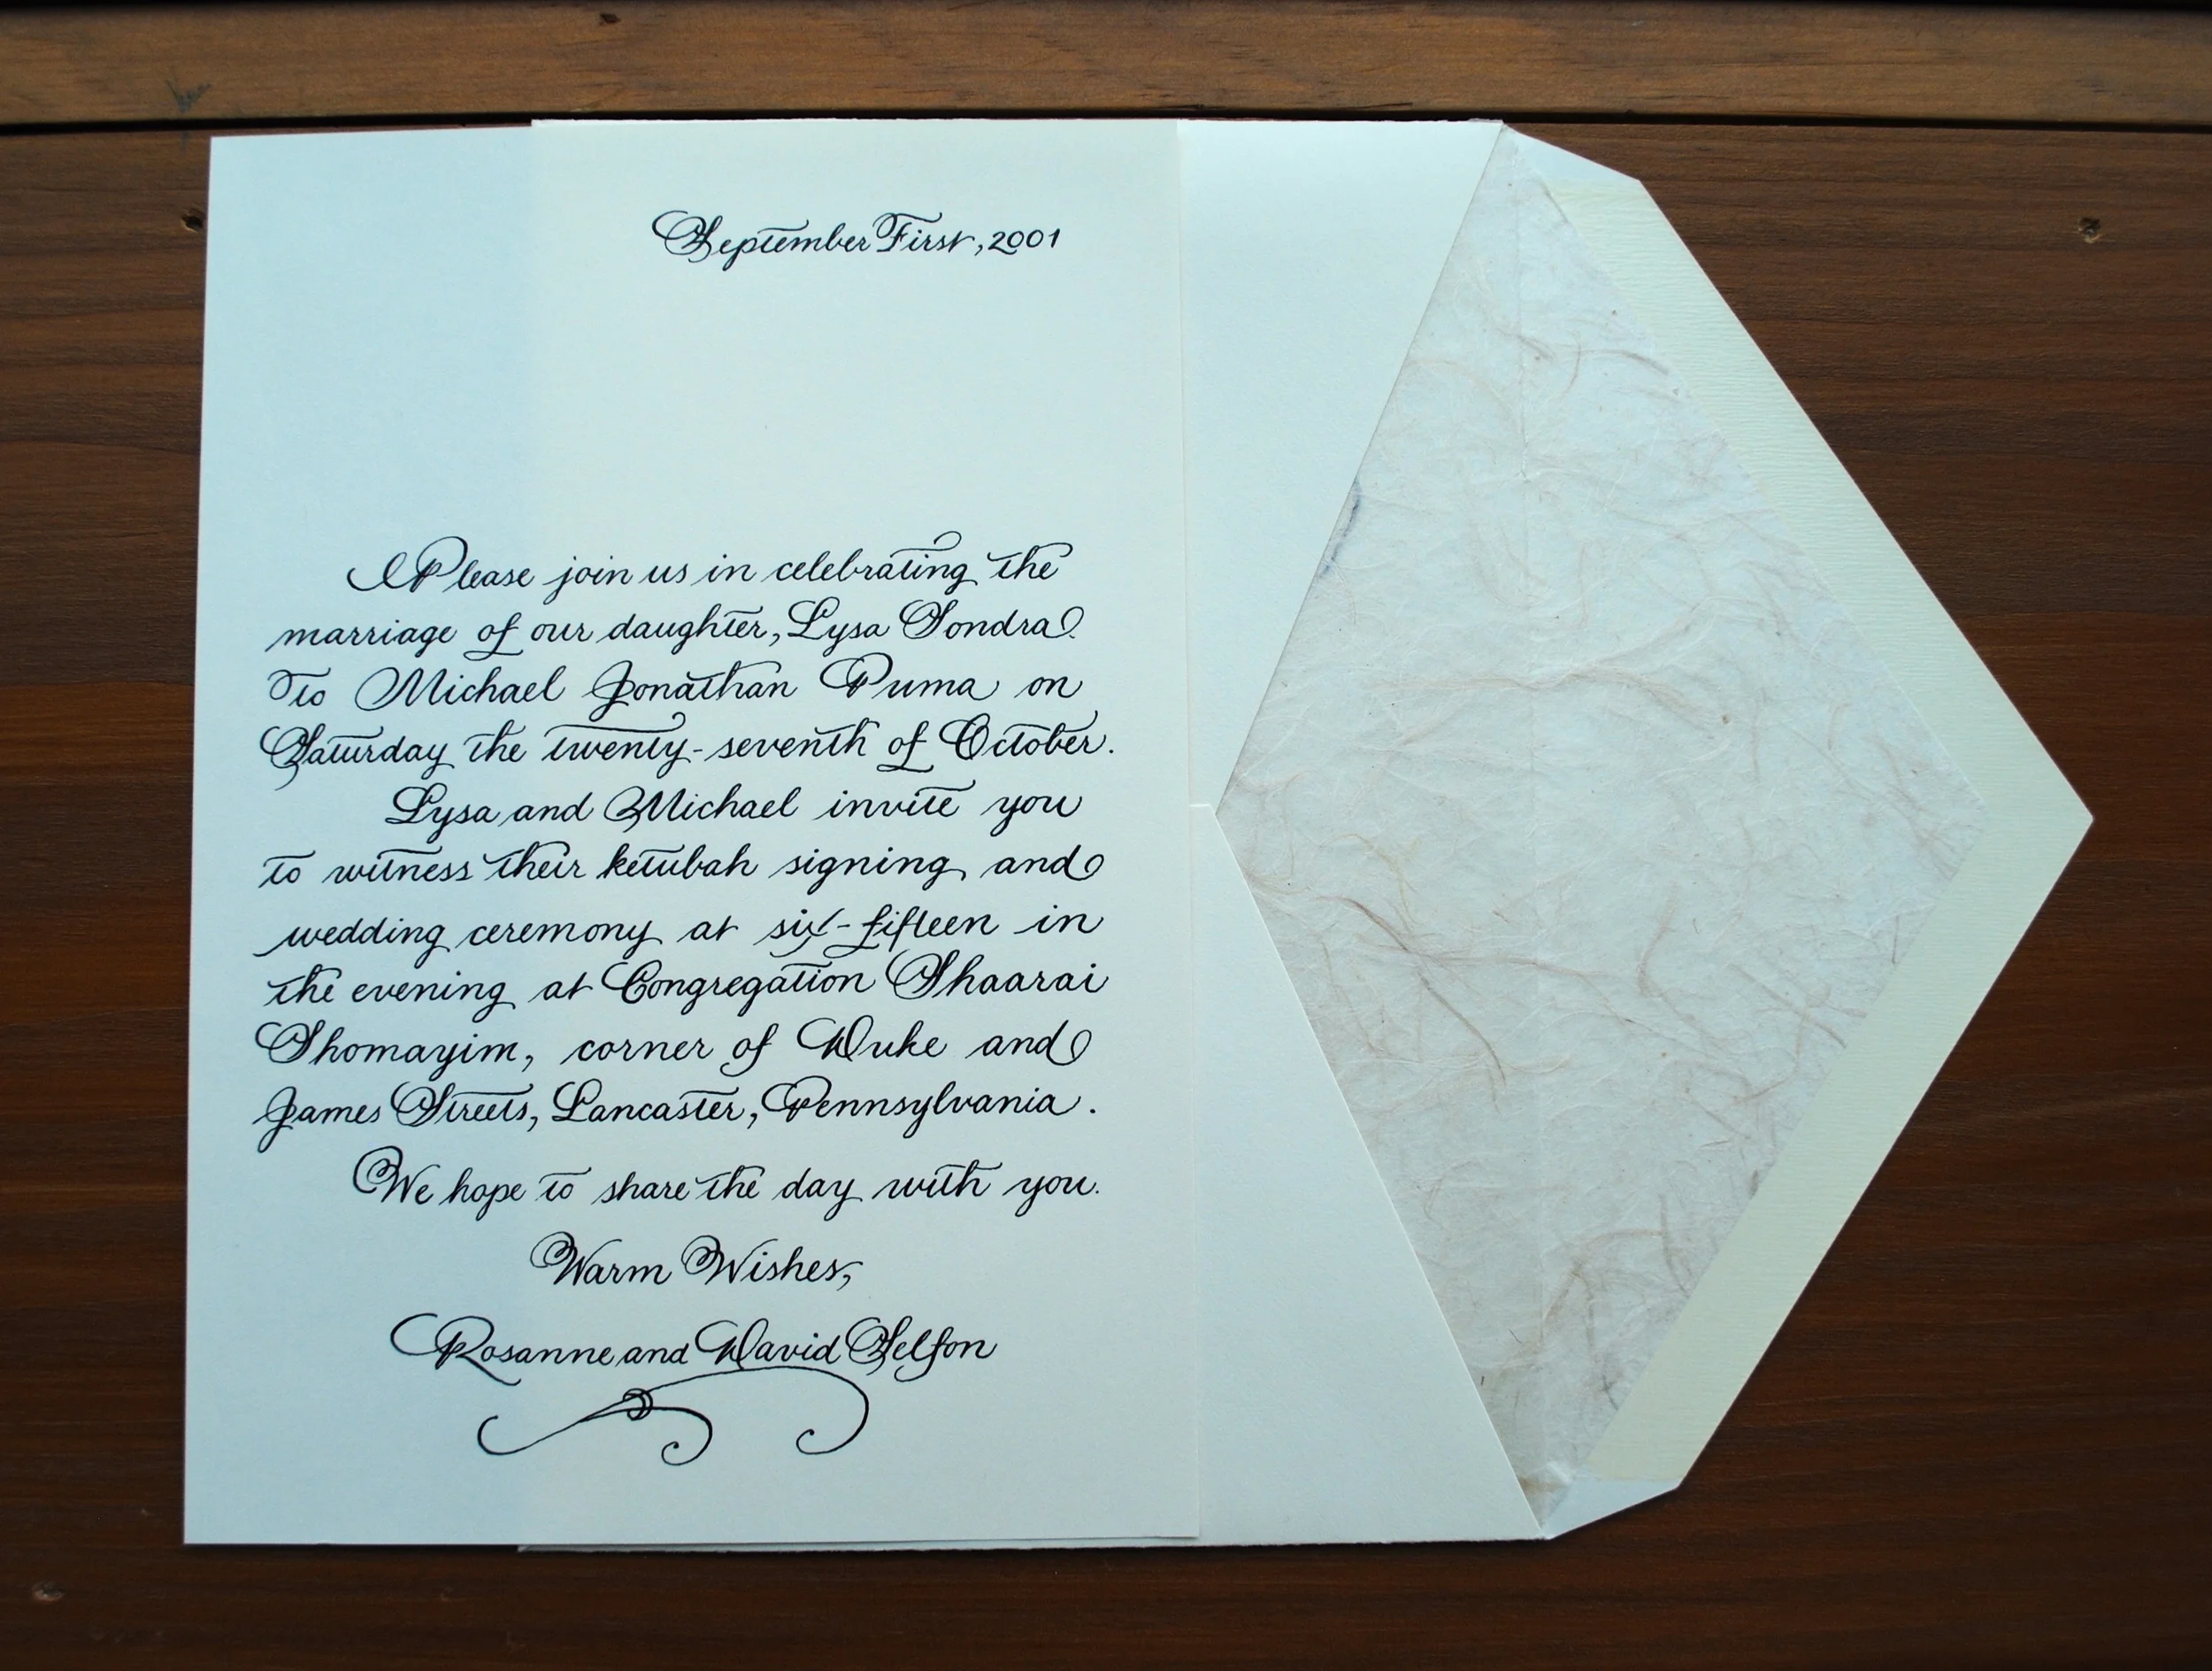 September First, 2001
Please join us in celebrating the
marriage of our daughter, Lysa Sondra
To Michael Jonathan Puma on
Saturday the twenty-seventh of October.
Lysa and Michael invite you
to witness their ketubah signing and
wedding ceremony at six-fifteen in
the evening at Congregation Shaarai
Shomayim, corner of Duke and
James Streets, Lancaster, Pennsylvania.
We hope to share the day with you.
Warm Wishes,
Rosanne and David Selfon